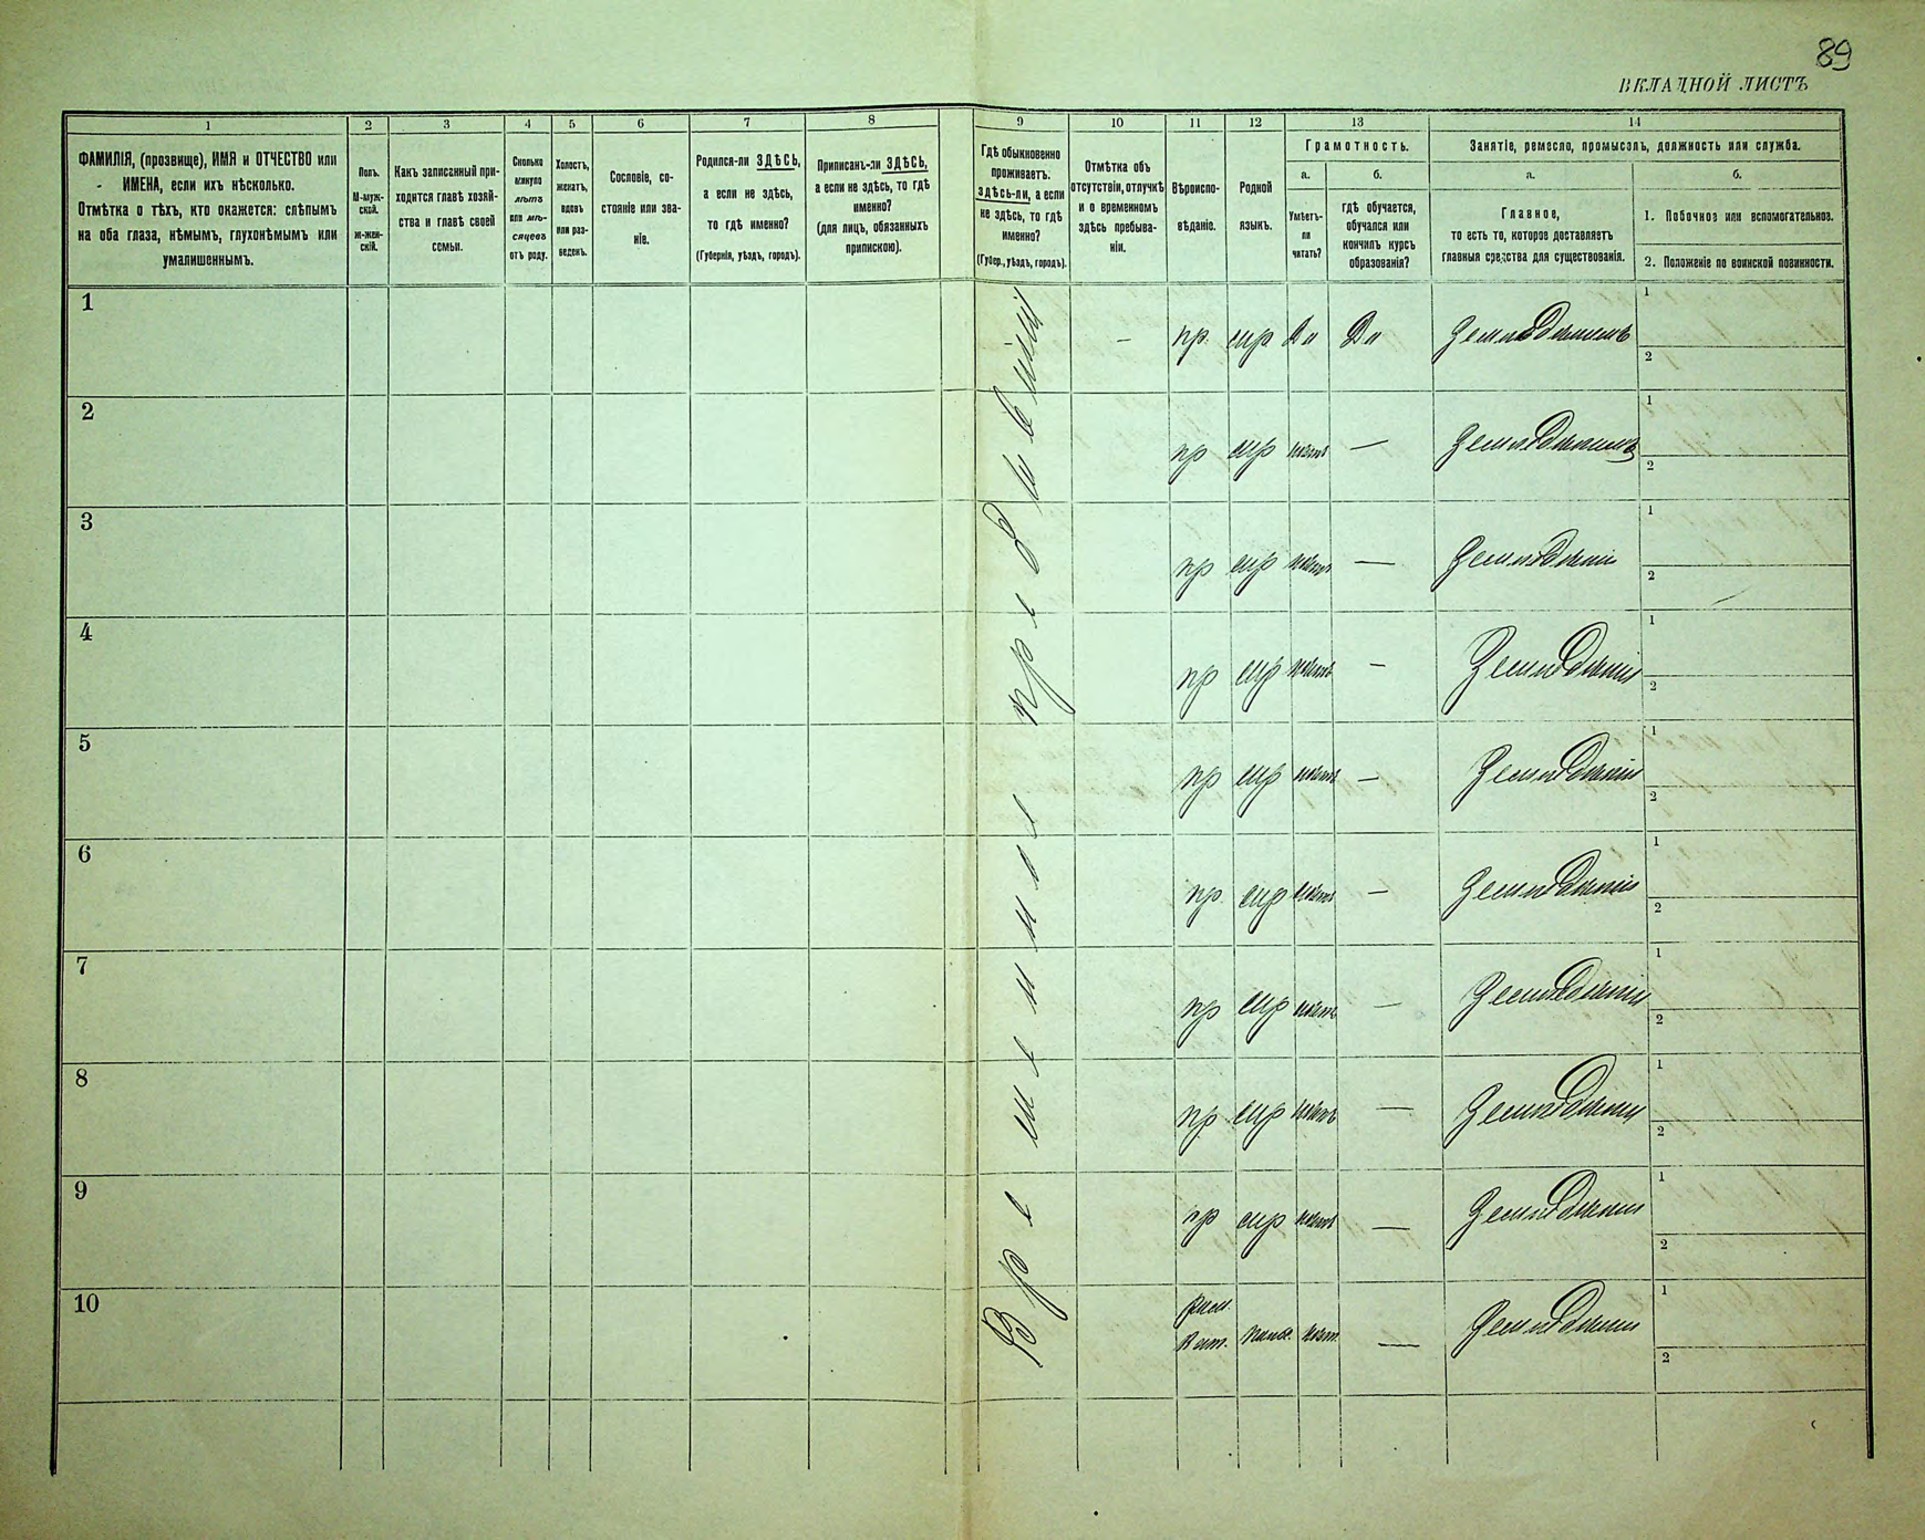 89
ВКЛАДНОЙ ЛИСТЪ
1 2 3 4 5 6 7 8 9 10 11 12 13 14
ФАМИЛІЯ, (прозвище), ИМЯ и ОТЧЕСТВО или
ИМЕНА, если ихъ нѣсколько.
Отмѣтка о тѣхъ, кто окажется: слѣпымъ
на оба глаза, нѣмымъ, глухонѣмымъ или
умалишеннымъ.
Полъ.
М-муж-
ской.
Ж-жен-
скій.
Какъ записанный при-
ходится главѣ хозяй-
ства и главѣ своей
семьи.
Сколько
минуло
лѣтъ
или мѣ-
сяцевъ
отъ роду.
Холостъ,
женатъ,
вдовъ
или раз-
веденъ.
Сословіе, со-
стояніе или зва-
ніе.
Родился-ли ЗДѢСЬ,
а если не здѣсь,
то гдѣ именно?
(Губернія, уѣздъ, городъ).
Приписанъ-ли ЗДѢСЬ,
а если не здѣсь, то гдѣ
именно?
(для лицъ, обязанныхъ
припискою).
Гдѣ обыкновенно
проживаетъ.
ЗДѢСЬ-ли, а если
не здѣсь, то гдѣ
именно?
(Губер., уѣздъ, городъ).
Отмѣтка объ
отсутствіи, отлучкѣ
и о временномъ
здѣсь пребыва-
ніи.
Вѣроиспо-
вѣданіе.
Родной
языкъ.
Грамотность.
а.
Умѣетъ-
ли
читать?
б.
гдѣ обучается,
обучался или
кончилъ курсъ
образованія?
Занятіе, ремесло, промыселъ, должность или служба.
а.
Главное,
то есть то, которое доставляетъ
главныя средства для существованія.
б.
1. Побочное или вспомогательное.
2. Положеніе по воинской повинности.
Временное пребываніе
1 — пр. мр. Да Да 1
2
2 пр мр нѣтъ — 1
2
3 пр мр нѣтъ — 1
2
4 пр мр нѣтъ — 1
2
5 пр мр нѣтъ — 1
2
6 пр. мр нѣтъ — 1
2
7 пр мр нѣтъ — 1
2
8 пр мр нѣтъ — 1
2
9 пр мр нѣтъ — 1
2
10 Рим.
Кат. нѣт. — 1
2